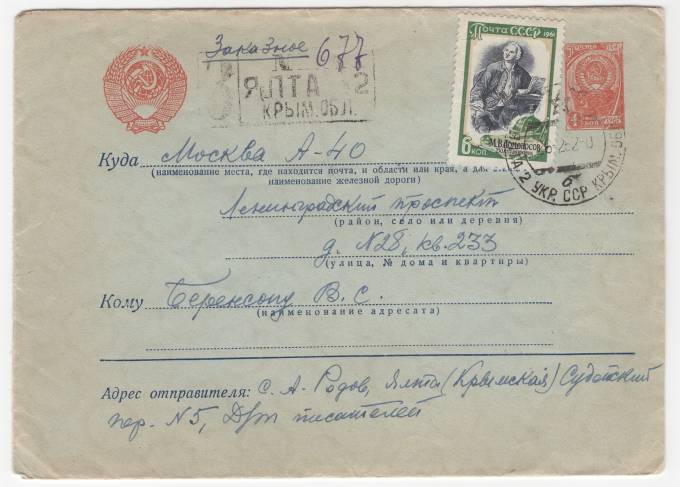 Заказное
№ 677
ЯЛТА 2
КРЫМ. ОБЛ.
ПОЧТА СССР 1961
6 КОП
М.В.Ломоносов
4 КОП
УКР. ССР КРЫМ. ОБ
Куда Москва А-40
(наименование места, где находится почта, и области или края, а для
наименование железной дороги)
Ленинградский проспект
(район, село или деревня)
д. N28, кв. 233
(улица, № дома и квартиры)
Кому Беренсону В. С.
(наименование адресата)
Адрес отправителя: С. А. Родов, Ялта (Крымская)
пер. N5, Дом писателей